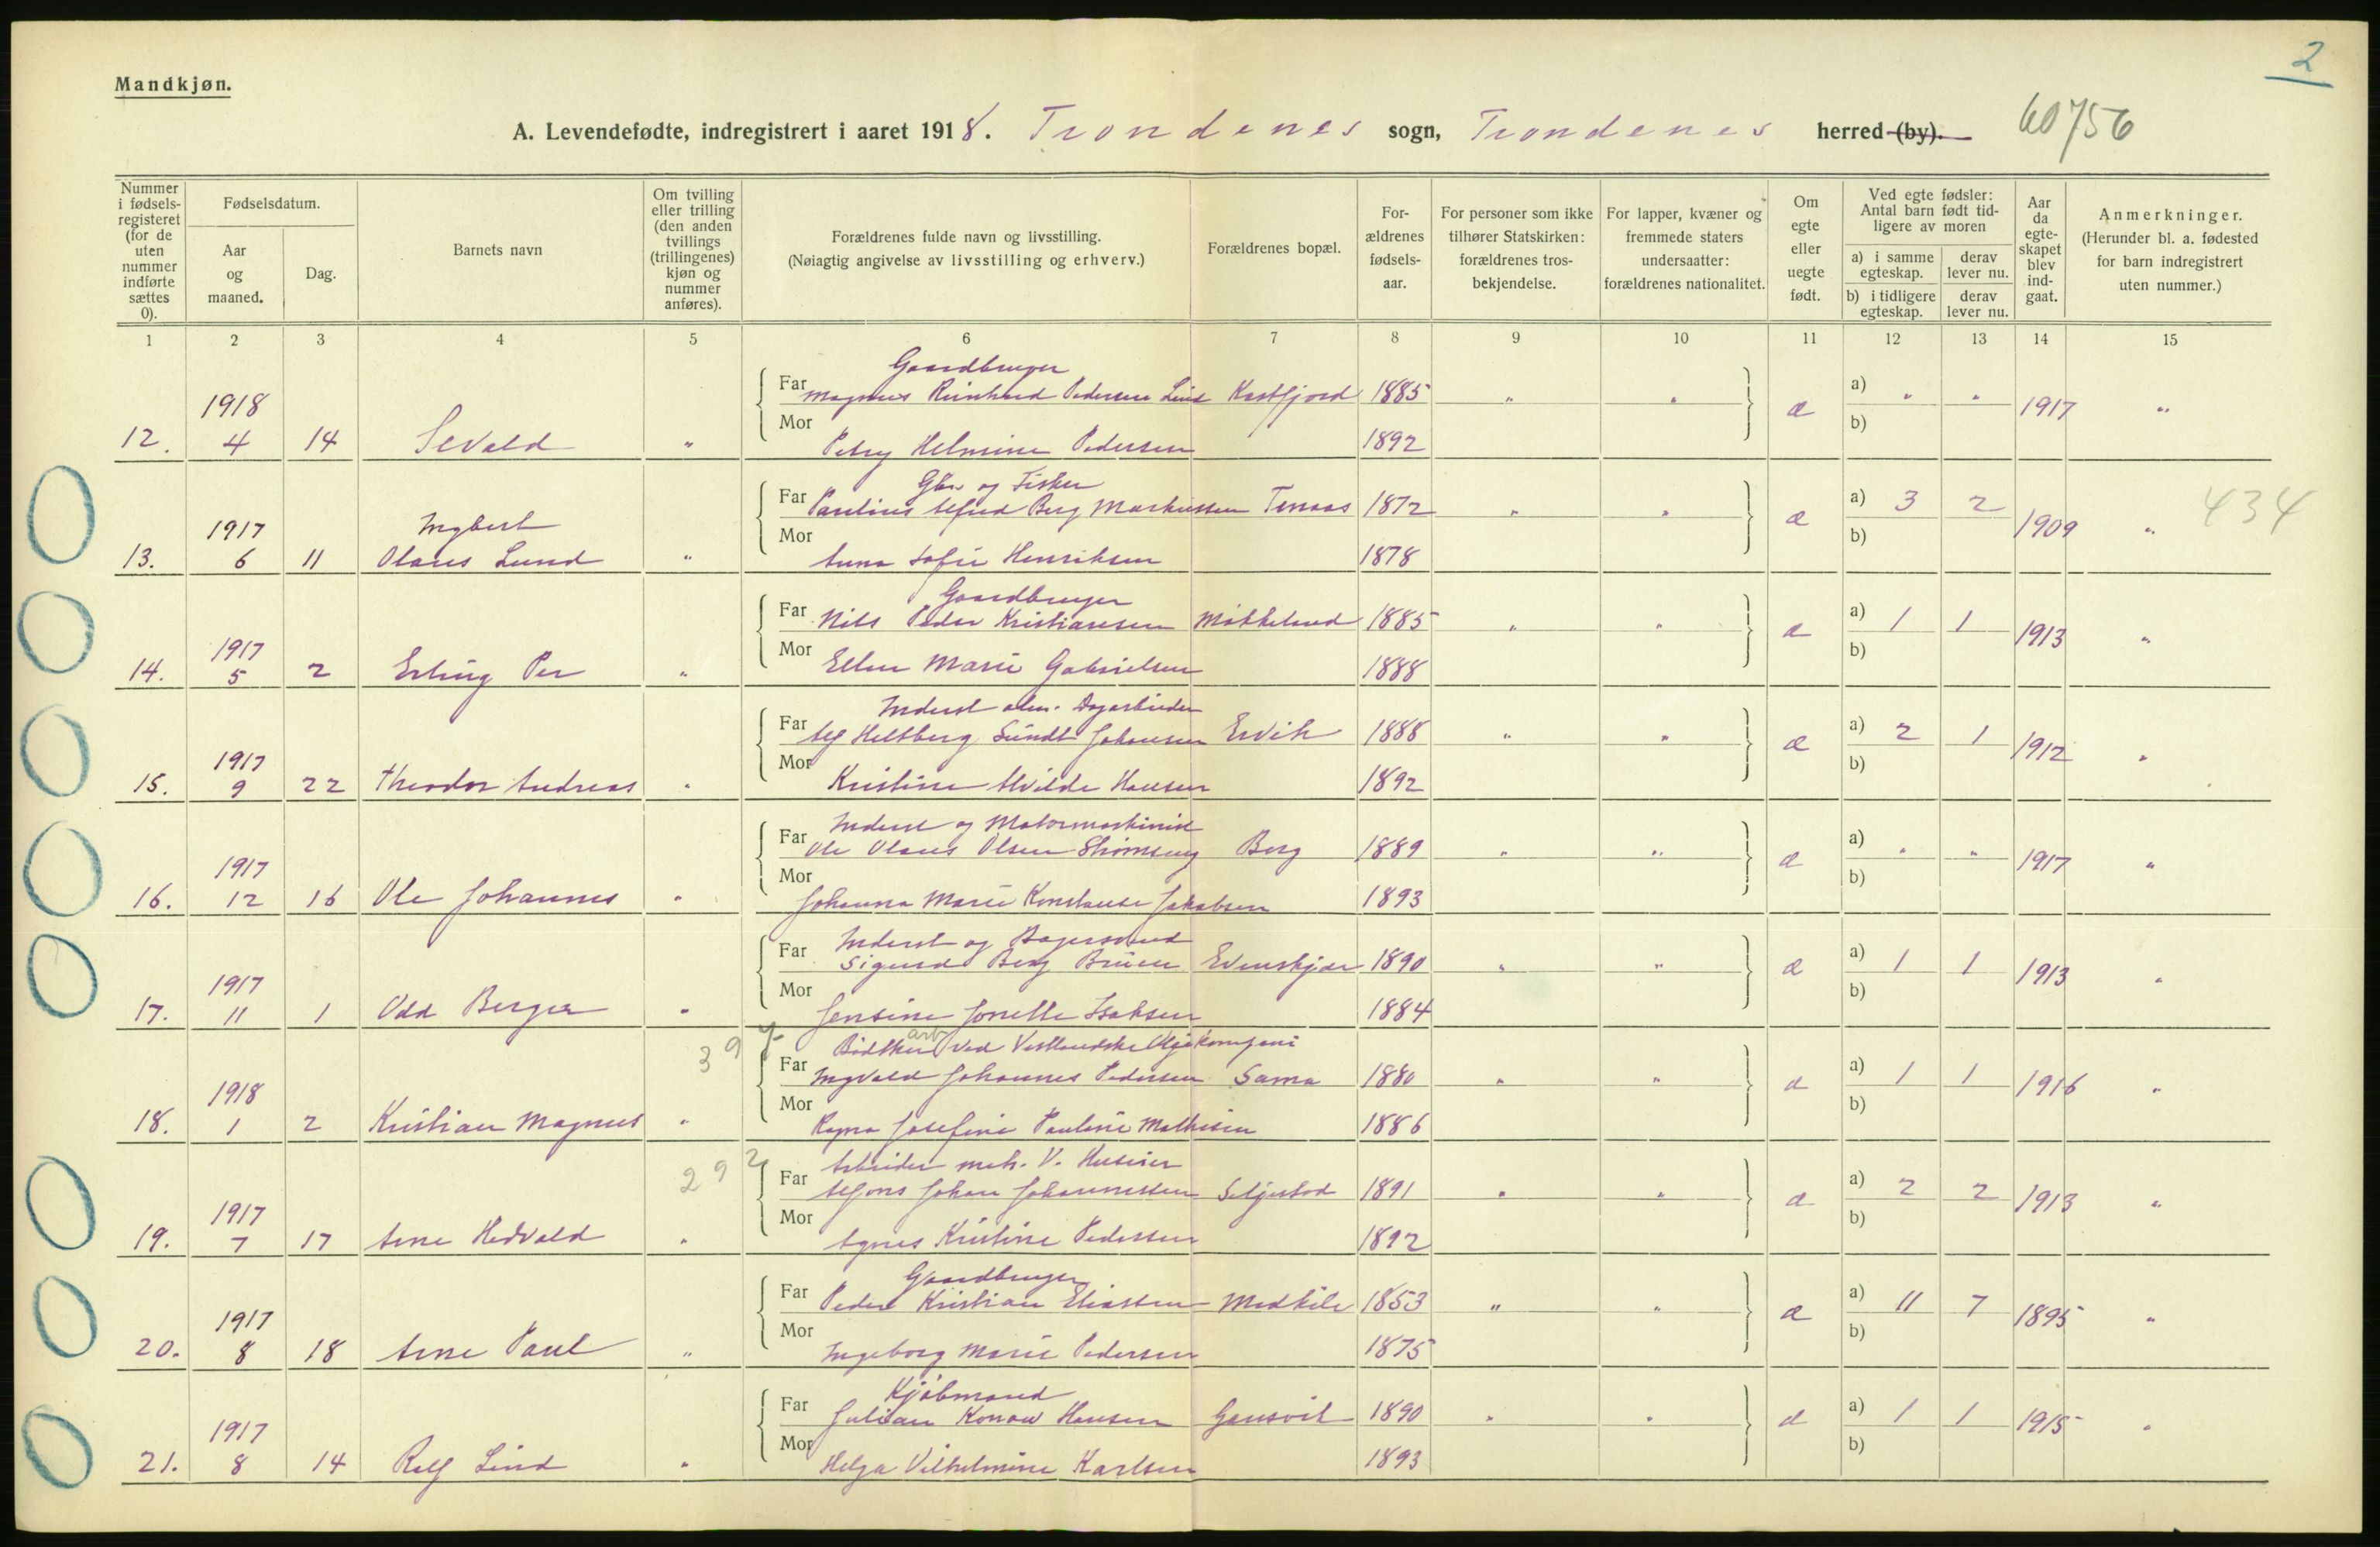 2
Mandkjøn.
A. Levendefødte, indregistrert i aaret 1918. Trondenes sogn, Trondenes herred (by). 60756
Nummer i fødsels-registeret (for de uten nummer indførte sættes 0).
Fødselsdatum.
Aar og maaned.
Dag.
Barnets navn
Om tvilling eller trilling (den anden tvillings (trillingenes) kjøn og nummer anføres).
Forældrenes fulde navn og livsstilling.
(Nøiagtig angivelse av livsstilling og erhverv.)
Forældrenes bopæl.
For-ældrenes fødsels-aar.
For personer som ikke tilhører Statskirken: forældrenes tros-bekjendelse.
For lapper, kvæner og fremmede staters undersaatter: forældrenes nationalitet.
Om egte eller uegte født.
Ved egte fødsler: Antal barn født tid-ligere av moren
a) i samme egteskap.
derav lever nu.
b) i tidligere egteskap.
derav lever nu.
Aar da egte-skapet blev ind-gaat.
Anmerkninger.
(Herunder bl. a. fødested for barn indregistrert uten nummer.)
1 2 3 4 5 6 7 8 9 10 11 12 13 14 15
Gaardbruger
1918 Far Magnus Reinhard Pedersen Lind Kastfjord 1885 " " æ a) " " 1917 "
12. 4 14 Sevald " Mor Petry Helmine Pedersen 1892 b)
Gbr. og Fisker
1917 Ingbert Far Paulius Alfred Berg Markussen Tennaas 1872 " " æ a) 3 2 1909 " 434
13. 6 11 Olaus Lund " Mor Anna Sofie Henriksen 1878 b)
Gaardbruger
1917 Far Nils Peder Kristiansen Møkkeland 1885 " " æ a) 1 1 1913 "
14. 5 2 Erling Per " Mor Ellen Marie Gabrielsen 1888 b)
Inderst alm. Dagarbeider
1917 Far Alf Heltberg Sundt Johansen Ervik 1888 " " æ a) 2 1 1912 "
15. 9 22 Theodor Andreas " Mor Kristine Alvilde Hansen 1892 b)
Inderst og Motormaskinist
1917 Far Ole Olaus Olsen Berg 1889 " " æ a) " " 1917 "
16. 12 16 Ole Johannes " Mor Johanna Marie Konstanse Jakobsen 1893 b)
Inderst og Bagersvend
1917 Far Sigurd Berg Bruun Evenskjær 1890 " " æ a) 1 1 1913 "
17. 11 1 Odd Berger " Mor Jensine Jonette Isaksen 1884 b)
397 Bødtker arb ved Vestlandske Oljekompani
1918 Far Ingvald Johannes Pedersen Sama 1880 " " æ a) 1 1 1916 "
18. 1 2 Kristian Magnus " Mor Ragna Josefine Pauline Mathisen 1886 b)
292 Arbeider mek. V.
1917 Far Alfons Johan Johannessen Seljestad 1891 " " æ a) 2 2 1913 "
19. 7 17 Arne Hedvald " Mor Agnes Kristine Pedersen 1892 b)
Gaardbruger
1917 Far Peder Kristian Eliassen Medkile 1853 " " æ a) 11 7 1895 "
20. 8 18 Arne Paul " Mor Ingeborg Marie Pedersen 1875 b)
Kjøbmand
1917 Far Julian Konow Hansen Gausvik 1890 " " æ a) 1 1 1915 "
21. 8 14 Rolf Lind " Mor Helga Vilhelmine Karlsen 1893 b)